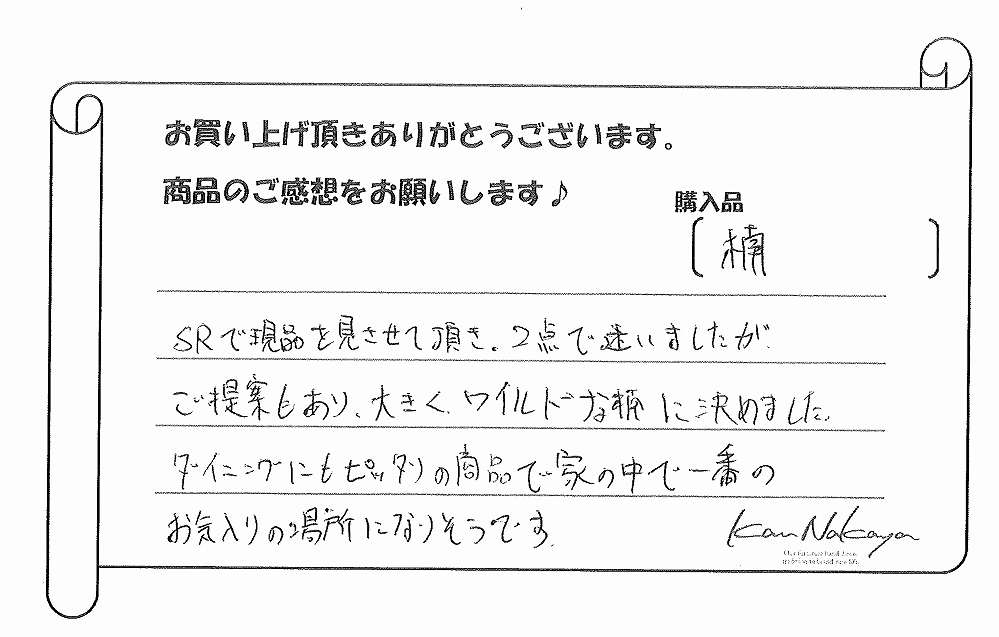 お買い上げ頂きありがとうございます。
商品のご感想をお願いします♪
購入品
〔 楠 〕
SRで現品を見させて頂き、2点で迷いましたが
ご提案もあり、大きく、ワイルドな楠に決めました。
ダイニングにもピッタリの商品で家の中で一番の
お気入りの場所になりそうです。
Kan Nakaya